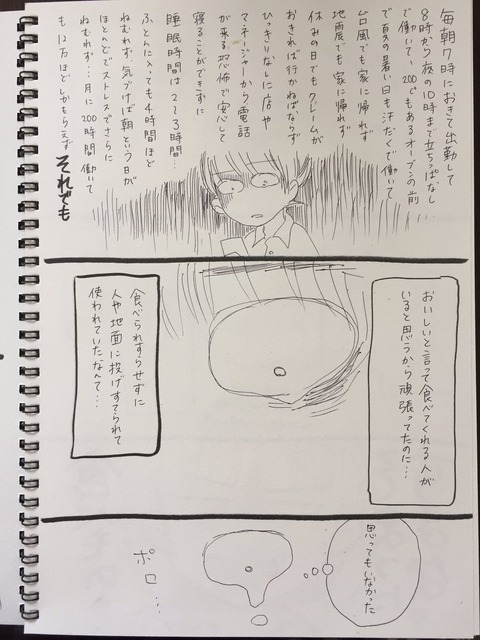 毎朝7時におきて出勤して
8時から夜の10時まで立ちっぱなし
で働いて、200℃もあるオーブンの前
で真夏の暑い日も汗だくで働いて
台風でも家に帰れず
地震でも家に帰れず
休みの日でもクレームが
おきれば行かねばならず
ひっきりなしに店や
マネージャーから電話
が来る恐怖で安心して
寝ることができずに
睡眠時間は2〜3時間…
ふとんに入っても4時間ほど
ねむれず、気づけば朝という日が
ほとんどでストレスでさらに
ねむれず…月に200時間働いて
も12万ほどしかもらえず
それでも
おいしいと言って食べてくれる人が
いると思うから頑張ってたのに…
食べられすらせずに
人や地面に投げすてられて
使われていたなんて…
思ってもいなかった
ポロ…